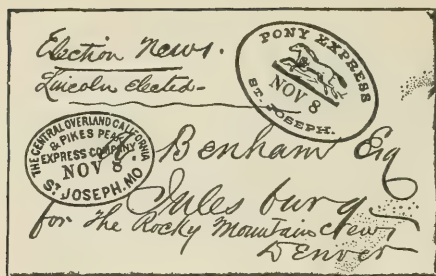 Election News.
Lincoln elected-
PONY EXPRESS
NOV 8
ST. JOSEPH.
THE CENTRAL OVERLAND CALIFORNIA
& PIKES PEAK
EXPRESS COMPANY
NOV 8
ST JOSEPH. MO
Benham Esq
Julesburg
for the Rocky Mountain
Denver